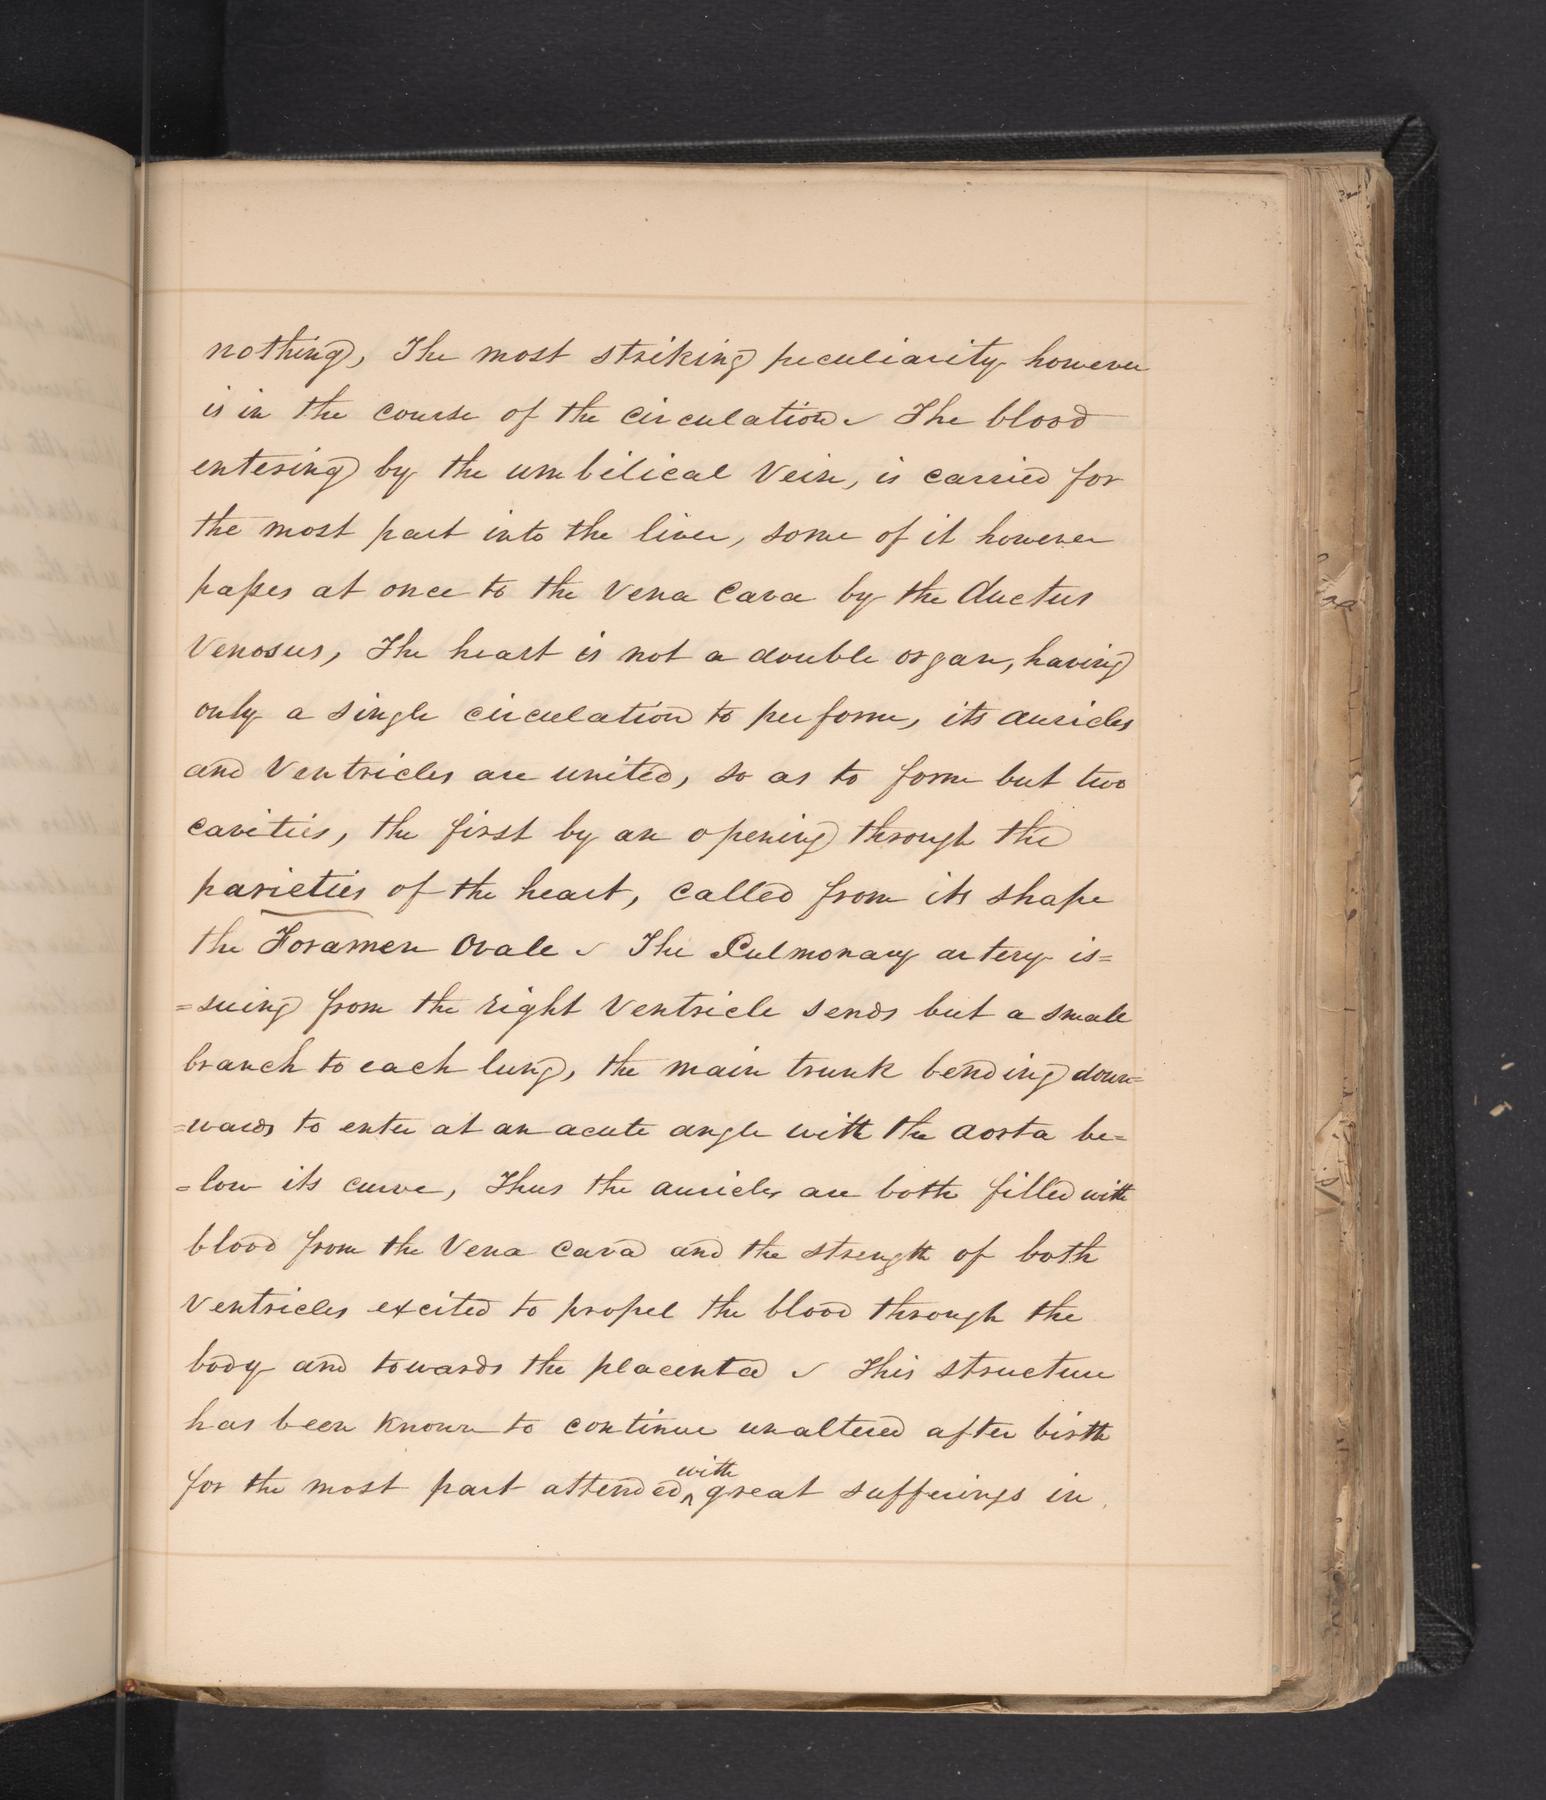 nothing, The most striking peculiarity however
is in the course of the circulation. The blood
entering by the umbilical Vein, is carried for
the most part into the liver, some of it however
paſses at once to the Vena Cava by the ductus
Venosus, The heart is not a double organ, having
only a single circulation to perform, its auricles
and Ventricles are united, so as to form but two
cavities, the first by an opening through the
parieties of the heart, called from its shape
the Foramen Ovale. The Pulmonary artery is=
=suing from the right Ventricle sends but a small
branch to each lung, the main trunk bending down=
=wards to enter at an acute angle with the aorta be=
=low its curve, Thus the auricles are both filled with
blood from the Vena Cava and the strength of both
Ventricles excited to propel the blood through the
body and towards the placenta. This structure
has been known to continue unaltered after birth
for the most part attended ^with great sufferings in